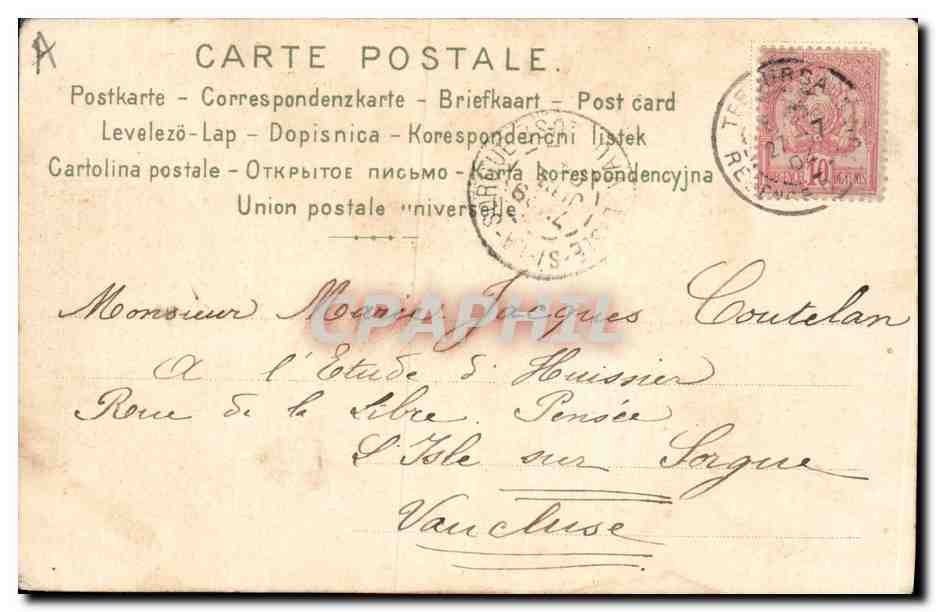 A
CARTE POSTALE.
Postkarte - Correspondenzkarte - Briefkaart - Post card
Levelezö-Lap - Dopisnica - Korespondenčni listek
Cartolina postale - Открытое письмо - Karta korespondencyjna
Union postale universelle
TEBOURSA
27 - 7
04
REGENCE
10
L'ISLE-S/-LA-SORGUE
CPAPHIL
Monsieur Marius Jacques Coutelan
A l'Etude d'Huissier
Rue de la Libre Pensée
L'Isle sur Sorgue
Vaucluse